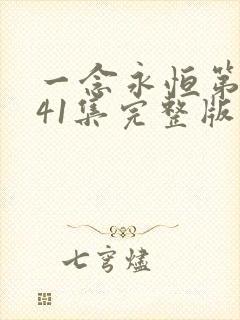 一念永恒第
41集完整版
七穹烬